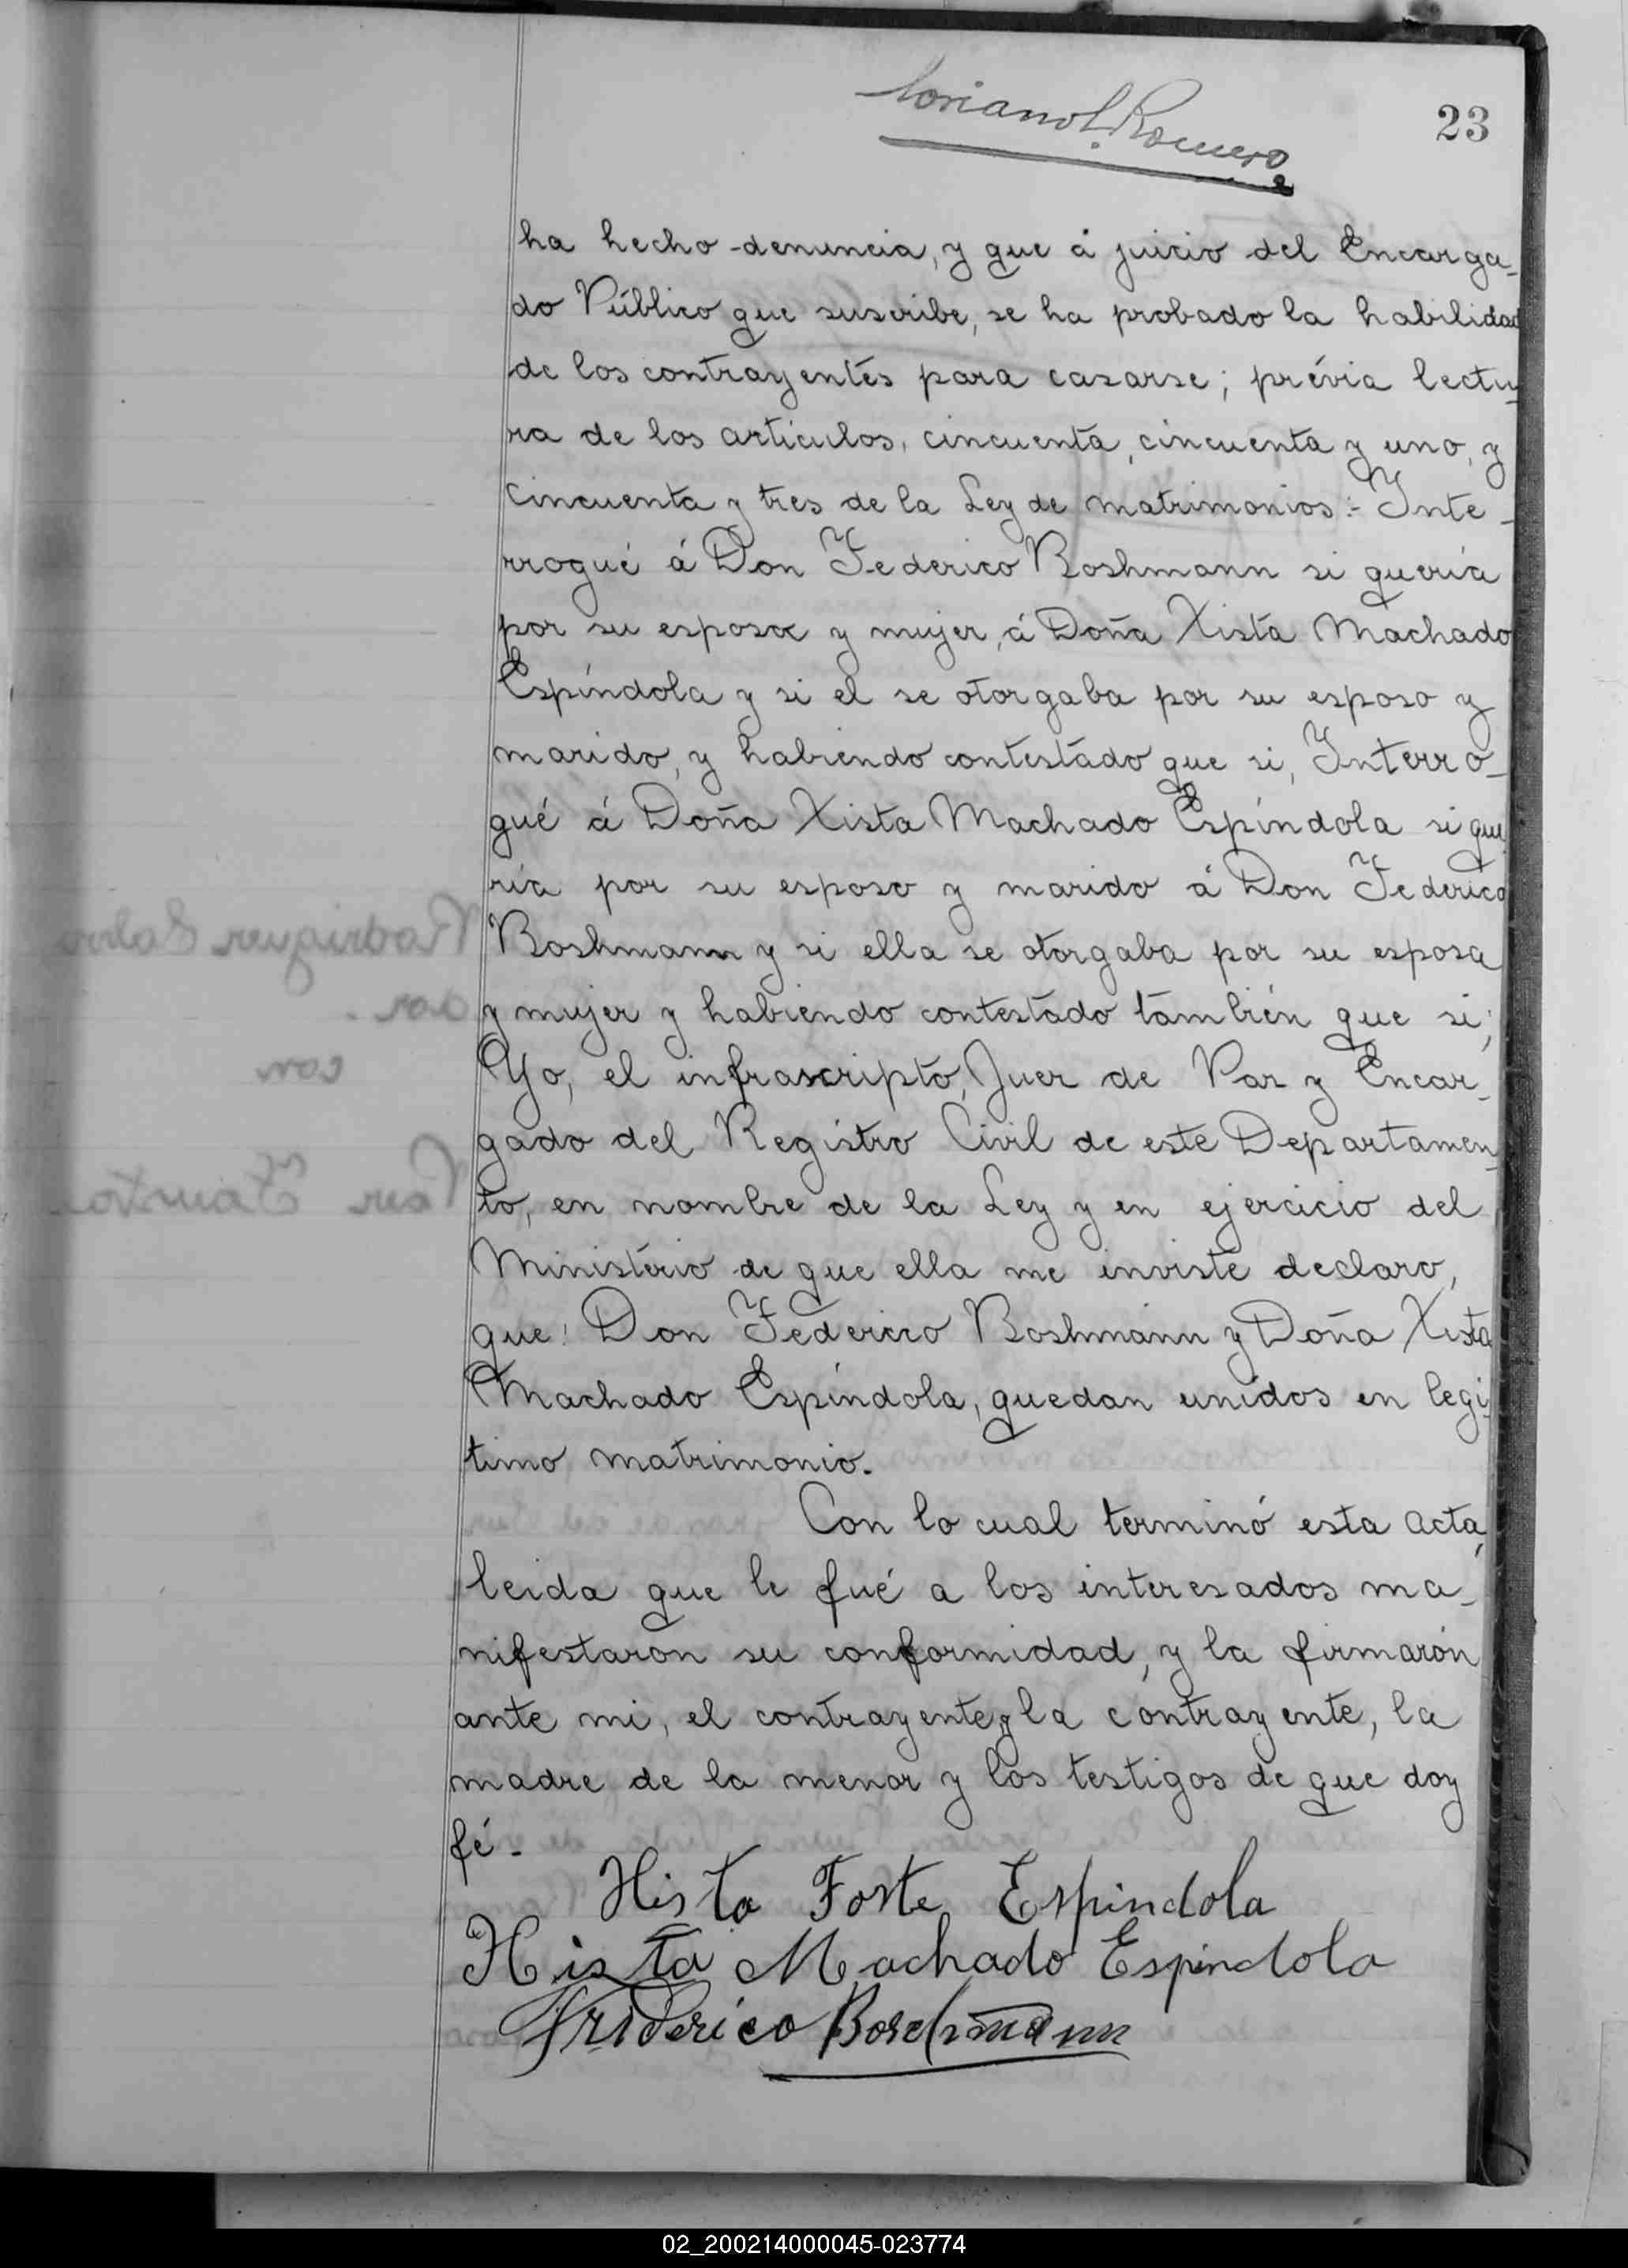 Loriano L. Romero
23
ha hecho denuncia, y que á juicio del Encarga-
do Público que suscribe, se ha probado la habilidad
de los contrayentes para casarse; prévia lectu-
ra de los artículos, cincuenta, cincuenta y uno, y
cincuenta y tres de la Ley de matrimonios:- Inte-
rrogué á Don Federico Boshmann si quería
por su esposa y mujer, á Doña Xista Machado
Espíndola y si el se otorgaba por su esposo y
marido, y habiendo contestado que si, Interro-
gué á Doña Xista Machado Espíndola si que
ría por su esposo y marido á Don Federico
Boshmann y si ella se otorgaba por su esposa
y mujer y habiendo contestado también que si;
Yo, el infrascripto, Juez de Paz y Encar-
gado del Registro Civil de este Departamen-
to, en nombre de la Ley y en ejercicio del
Ministério de que ella me inviste declaro,
que: Don Federico Boshmann y Doña Xista
Machado Espíndola, quedan unidos en legi-
timo matrimonio.
Con lo cual terminó esta acta,
leida que le fué a los interesados ma-
nifestaron su conformidad, y la firmarón
ante mi, el contrayente y la contrayente, la
madre de la menor y los testigos de que doy
fé.
Hista Forte Espindola
Hista Machado Espindola
Friderico Boschmann
02_200214000045-023774